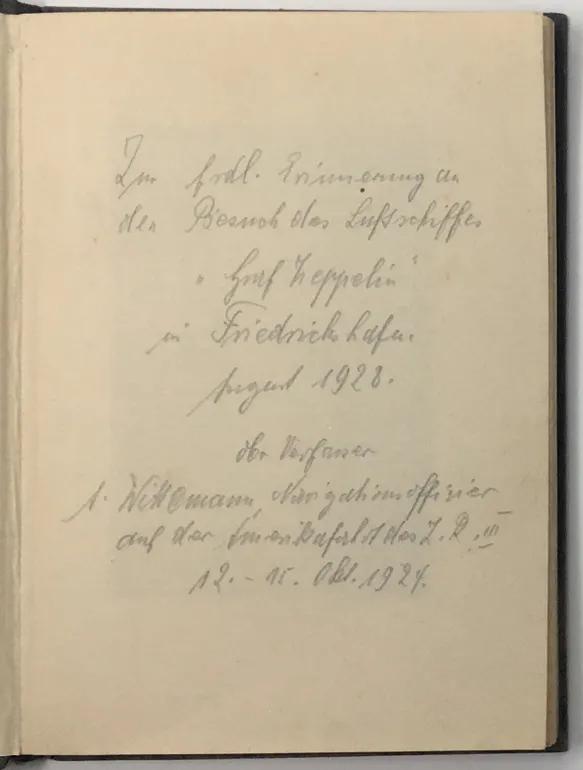 Zur frdl. Erinnerung an
den Besuch des Luftschiffes
"Graf Zeppelin"
in Friedrichshafen.
August 1928.
der Verfasser
A. Wittemann, Navigationsoffizier
auf der Amerikafahrt des Z. R. III
12. - 15. Okt. 1924.